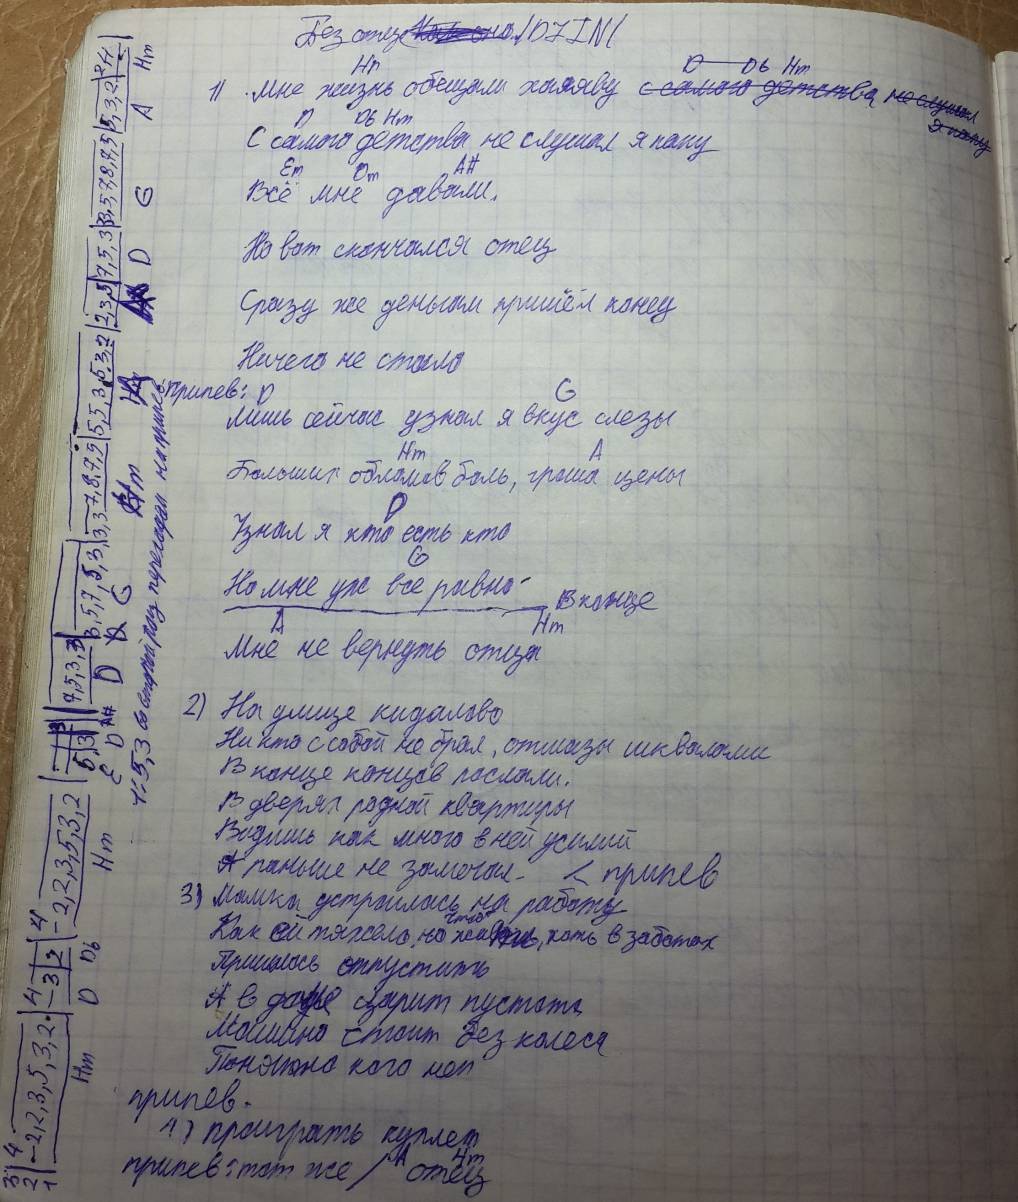 Без отца /DJIN/
Hm D Db Hm
1) Мне жизнь обещали халяву с самого детства не слушал я папу
D Db Hm
С самого детства не слушал я папу
Em Dm A#
Всё мне давали.
Но вот скончался отец
Сразу же деньгам пришёл конец
Ничего не стало
припев: D G
Лишь сейчас узнал я вкус слезы
Hm A
Больших обломов боль, гроша цены
D
Узнал я кто есть кто
G
Но мне уж все равно
В конце
A Hm
Мне не вернуть отца
2) На улице кидалово
Никто с собой не брал, отмазы шквалами
В конце концов послали.
В дверях родной квартиры
Видишь как много в ней усилий
А раньше не замечал - < припев
3) Мамка устроилась на работу
Как ей тяжело, но хоть в заботах
Пришлось отпустить
А в душе царит пустота
Машина стоит без колеса
Понятно кого нет
припев.
4) проиграть куплет
припев: тот же / A Hm
отец
-2,2,3,5,3,2 | -3 | 2 | -2,2,3,5,3,2
Hm D Db Hm
5,3 | 7,5,3,3 | 3,5,7,5,3,3,3
E D A# D G
7,8,7,5 | 5,5,3,5,3,2 | 2,3,5 | 7,5,3 | 3,5,7,8,7,5 | 5,3,2
Hm D G A Hm
5,3 во второй раз переходом на припев